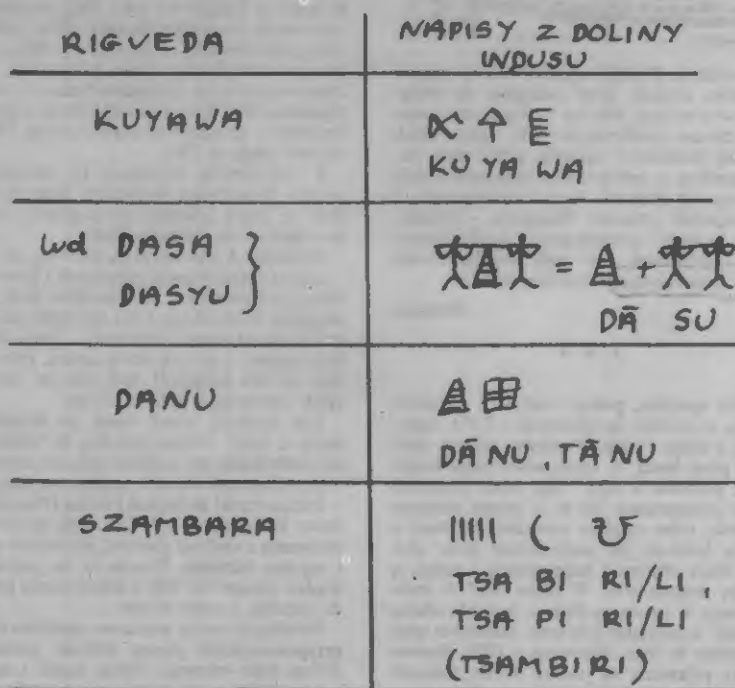 RIGVEDA
NAPISY Z DOLINY
INDUSU
KUYAWA
KU YA WA
lud DASA
DASYU
=
+
DĀ SU
DANU
DĀ NU, TĀ NU
SZAMBARA
TSA BI RI/LI,
TSA PI RI/LI
(TSAMBIRI)